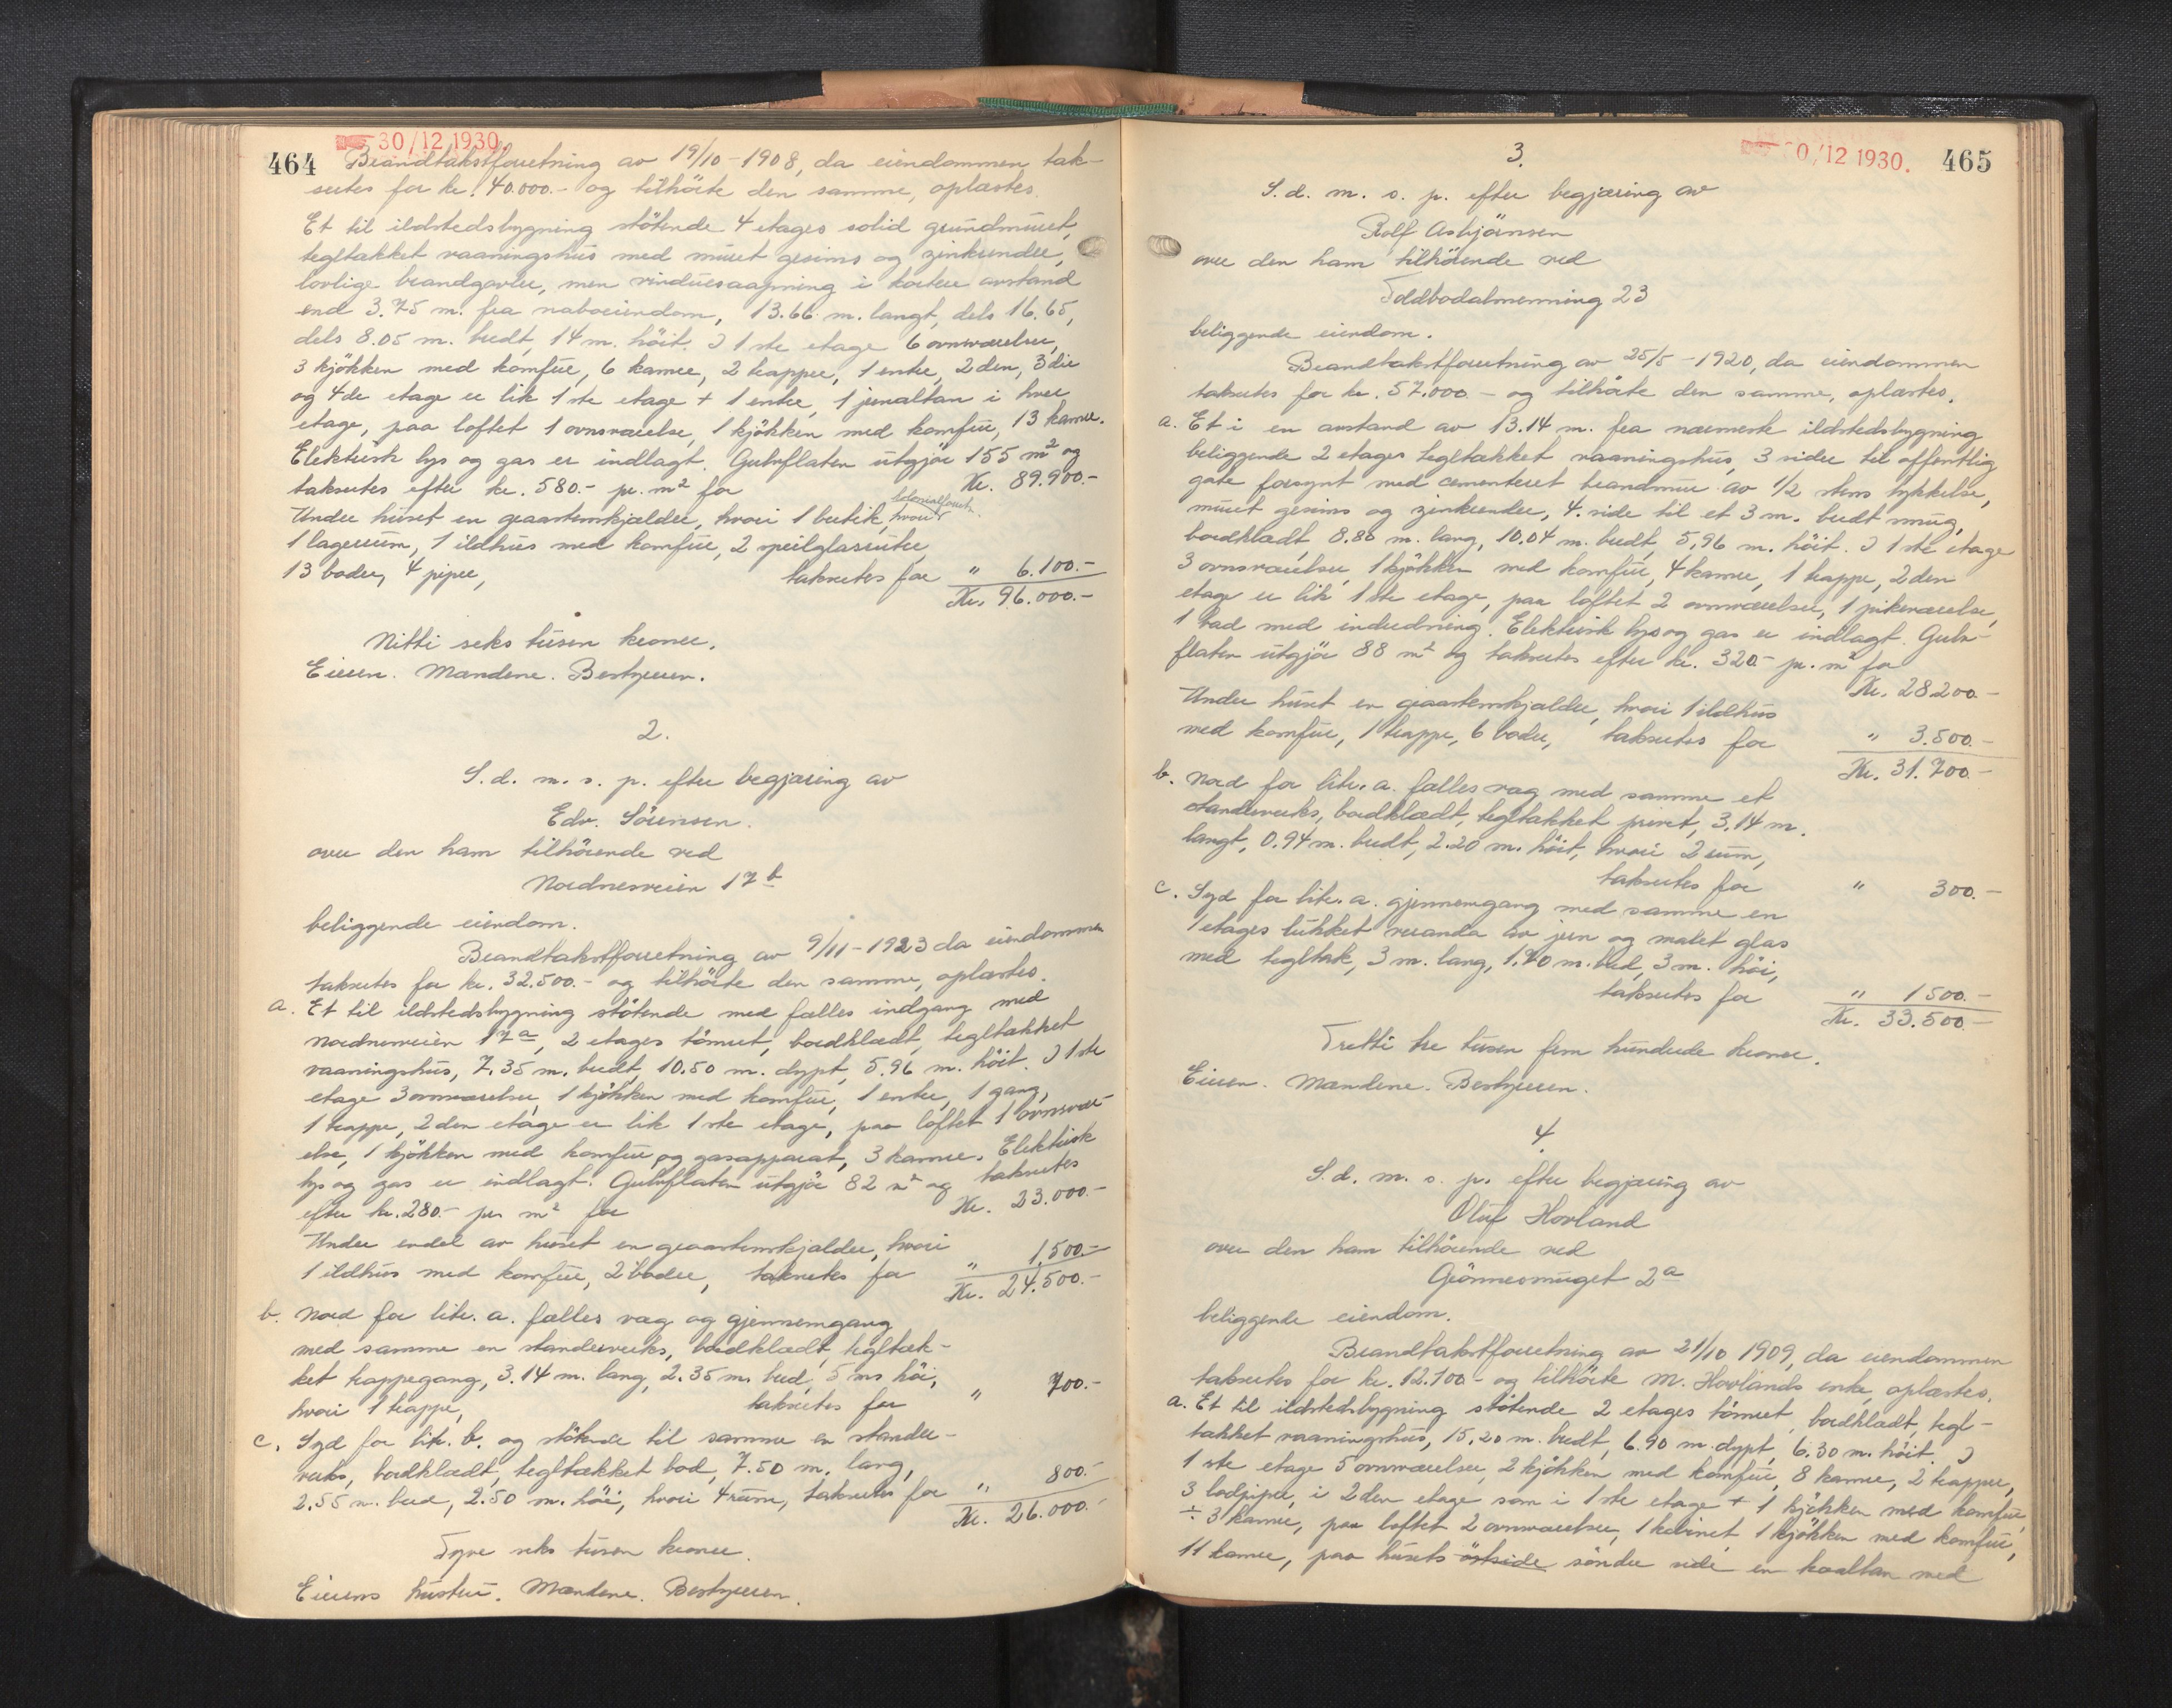 464
30/12 1930.
Brandtakstforretning av 19/10 - 1908, da eiendommen tak-
sertes for kr. 40.000.- og tilhörte den samme, oplæstes.
Et til ildstedsbygning stötende 4 etages solid grundmuret,
tegltækket vaaningshus med muret gesims og zinkrender,
lovlige brandgavler, men vinduesaapning i kortere avstand
end 3.75 m. fra naboeiendom, 13.66 m. langt, dels 16.65,
dels 8.05 m. bredt, 14 m. höit. I 1ste etage 6 ovnsværelser,
3 kjökken med komfur, 6 kamre, 2 trapper, 1 entre, 2den, 3die
og 4de etage er lik 1ste etage + 1 entre, 1 jernaltan i hver
etage, paa loftet 1 ovnsværelse, 1 kjökken med komfur, 13 kamre.
Elektrisk lys og gas er indlagt. Gulvflaten utgjör 155 m² og
taksertes efter kr. 580.- pr. m² for Kr. 89.900.-
Under huset en graastenskjælder, hvori 1 butik, hvori
1 lagerrum, 1 ildhus med komfur, 2 speilglasruter,
13 boder, 4 piper, taksertes for " 6.100.-
Kr. 96.000.-
Nitti seks tusen kroner.
Eieren. Mændene. Bestyreren.
2.
S. d. m. s. p. efter begjæring av
Edv. Sörensen.
over den ham tilhörende ved
Nordnesveien 17 b
beliggende eiendom.
Brandtakstforretning av 9/11 - 1923 da eiendommen
taksertes for kr. 32.500.- og tilhörte den samme, oplæstes.
a. Et til ildstedsbygning stötende med fælles indgang med
Nordnesveien 17 a, 2 etages tömret, bordklædt, tegltækket
vaaningshus, 7.35 m. bredt, 10.50 m. dypt, 5.96 m. höit. I 1ste
etage 3 ovnsværelser, 1 kjökken med komfur, 1 entre, 1 gang,
1 trappe, 2den etage er lik 1ste etage, paa loftet 1 ovnsvær-
else, 1 kjökken med komfur og gasapparat, 3 kamre. Elektrisk
lys og gas er indlagt. Gulvflaten utgjör 82 m² og taksertes
efter kr. 280.- pr. m² for Kr. 23.000.-
Under endel av huset en graastenskjælder, hvori
1 ildhus med komfur, 2 boder, taksertes for " 1.500.-
Kr. 24.500.-
b. Nord for litr. a. fælles væg og gjennemgang
med samme en standerverks, bordklædt, tegltæk-
ket trappegang, 3.14 m. lang, 2.35 m. bred, 5 m. höi,
hvori 1 trappe, taksertes for " 700.-
c. Syd for litr. b. og stötende til samme en stander-
verks, bordklædt, tegltækket bod, 7.50 m. lang,
2.55 m. bred, 2.50 m. höi, hvori 4 rum, taksertes for " 800.-
Kr. 26.000.-
Tyve seks tusen kroner.
Eierens hustru. Mændene. Bestyreren.
0/12 1930.
465
3.
S. d. m. s. p. efter begjæring av
Rolf Asbjörnsen
over den ham tilhörende ved
Toldbodalmenning 23
beliggende eiendom.
Brandtakstforretning av 25/5 - 1920, da eiendommen
taksertes for kr. 57.000.- og tilhörte den samme, oplæstes.
a. Et i en avstand av 13.14 m. fra nærmeste ildstedsbygning
beliggende 2 etages tegltækket vaaningshus, 3 sider til offentlig
gate forsynt med cementeret brandmur av 1/2 stens tykkelse,
muret gesims og zinkrender, 4. side til et 3 m. bredt smug,
bordklædt, 8.80 m. lang, 10.04 m. bredt, 5,96 m. höit. I 1ste etage
3 ovnsværelser, 1 kjökken med komfur, 4 kamre, 1 trappe, 2den
etage er lik 1ste etage, paa loftet 2 ovnsværelser, 1 pikeværelse,
1 bad med indredning. Elektrisk lys og gas er indlagt. Gulv-
flaten utgjör 88 m² og taksertes efter kr. 320.- pr. m² for
Kr. 28.200.-
Under huset en graastenskjælder, hvori 1 ildhus
med komfur, 1 trappe, 6 boder, taksertes for " 3.500.-
Kr. 31.700.-
b. Nord for litr. a. fælles væg med samme et
standerverks, bordklædt, tegltækket privet, 3,14 m.
langt, 0.94 m. bredt, 2.20 m. höit, hvori 2 rum,
taksertes for " 300.-
c. Syd for litr. a. gjennemgang med samme en
1 etages lukket veranda av jern og malet glas
med tegltak, 3 m. lang, 1.70 m. bred, 3 m. höi,
taksertes for " 1500.-
Kr. 33.500.-
Tretti tre tusen fem hundrede kroner.
Eieren. Mændene. Bestyreren.
4.
S. d. m. s. p. efter begjæring av
Oluf Hovland
over den ham tilhörende ved
Grönnesmuget 2 a
beliggende eiendom.
Brandtakstforretning av 21/10 1909, da eiendommen
taksertes for kr. 12.100.- og tilhörte M. Hovlands enke, oplæstes.
a. Et til ildstedsbygning stötende 2 etages tömret, bordklædt, tegl-
tækket vaaningshus, 15.20 m. bredt, 6.90 m. dypt, 6.30 m. höit. I
1ste etage 5 ovnsværelser, 2 kjökken med komfur, 8 kamre, 2 trapper,
3 lodpiper, i 2den etage som i 1ste etage + 1 kjökken med komfur
÷ 3 kamre, paa loftet 2 ovnsværelser, 1 kabinet, 1 kjökken med komfur,
11 kamre, paa husets östside söndre side en træaltan med